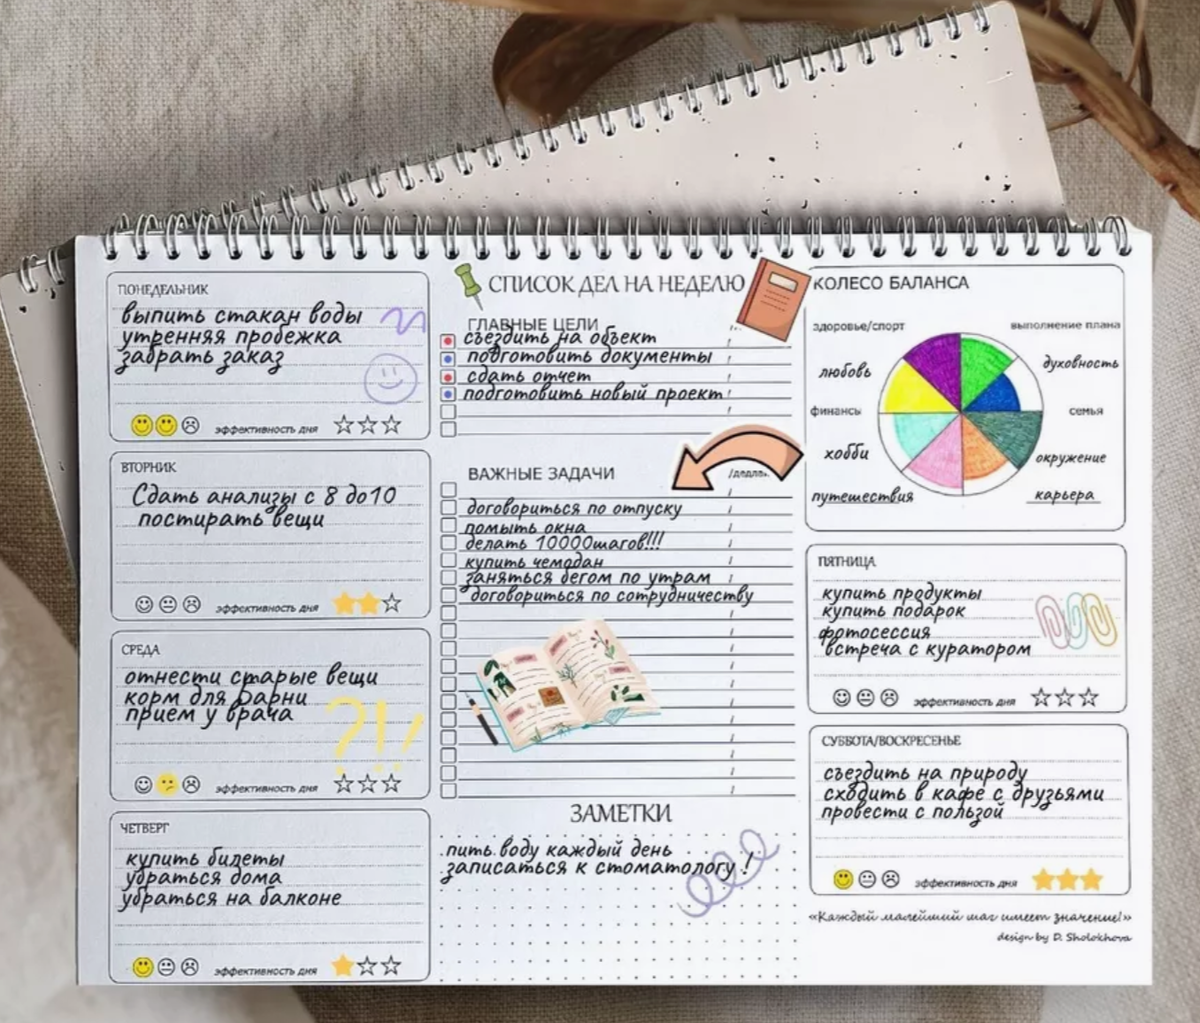 ПОНЕДЕЛЬНИК
выпить стакан воды
утренняя пробежка
забрать заказ
эффективность дня
ВТОРНИК
Сдать анализы с 8 до10
постирать вещи
эффективность дня
СРЕДА
отнести старые вещи
корм для Барни
прием у врача
?!!
эффективность дня
ЧЕТВЕРГ
купить билеты
убраться дома
убраться на балконе
эффективность дня
СПИСОК ДЕЛ НА НЕДЕЛЮ
ГЛАВНЫЕ ЦЕЛИ
съездить на объект
подготовить документы
сдать отчет
подготовить новый проект
ВАЖНЫЕ ЗАДАЧИ
договориться по отпуску
помыть окна
делать 10000шагов!!!
купить чемодан
заняться бегом по утрам
договориться по сотрудничеству
ЗАМЕТКИ
пить воду каждый день
записаться к стоматологу !
КОЛЕСО БАЛАНСА
здоровье/спорт
выполнение плана
любовь
духовность
финансы
семья
хобби
окружение
путешествия
карьера
ПЯТНИЦА
купить продукты
купить подарок
фотосессия
встреча с куратором
эффективность дня
СУББОТА/ВОСКРЕСЕНЬЕ
съездить на природу
сходить в кафе с друзьями
провести с пользой
эффективность дня
«Каждый малейший шаг имеет значение!»
design by D. Sholokhova